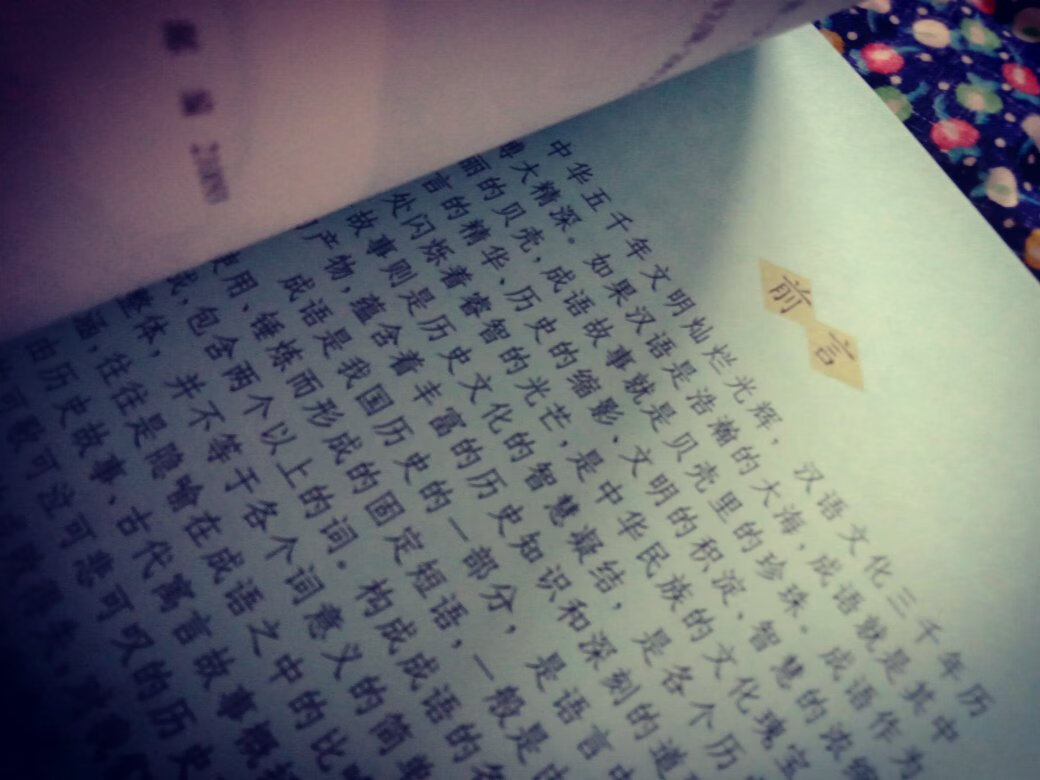 前言
中华五千年文明灿烂光辉，汉语文化三千年历
博大精深。如果汉语是浩瀚的大海，成语就是其中
丽的贝壳，成语故事就是贝壳里的珍珠。成语作为
言的精华、历史的缩影、文明的积淀、智慧的浓缩
处闪烁着睿智的光芒，是中华民族的文化瑰宝
故事则是历史文化的智慧凝结，是各个历
产物，蕴含着丰富的历史知识和深刻的道
成语是我国历史的一部分，是语言
用、锤炼而形成的固定短语，一般是
成，包含两个以上的词。构成成语的各
整体，并不等于各个词意义的简单
涵，往往是隐喻在成语之中的比
由历史故事、古代寓言故事概
可歌可泣可悲可叹的历史